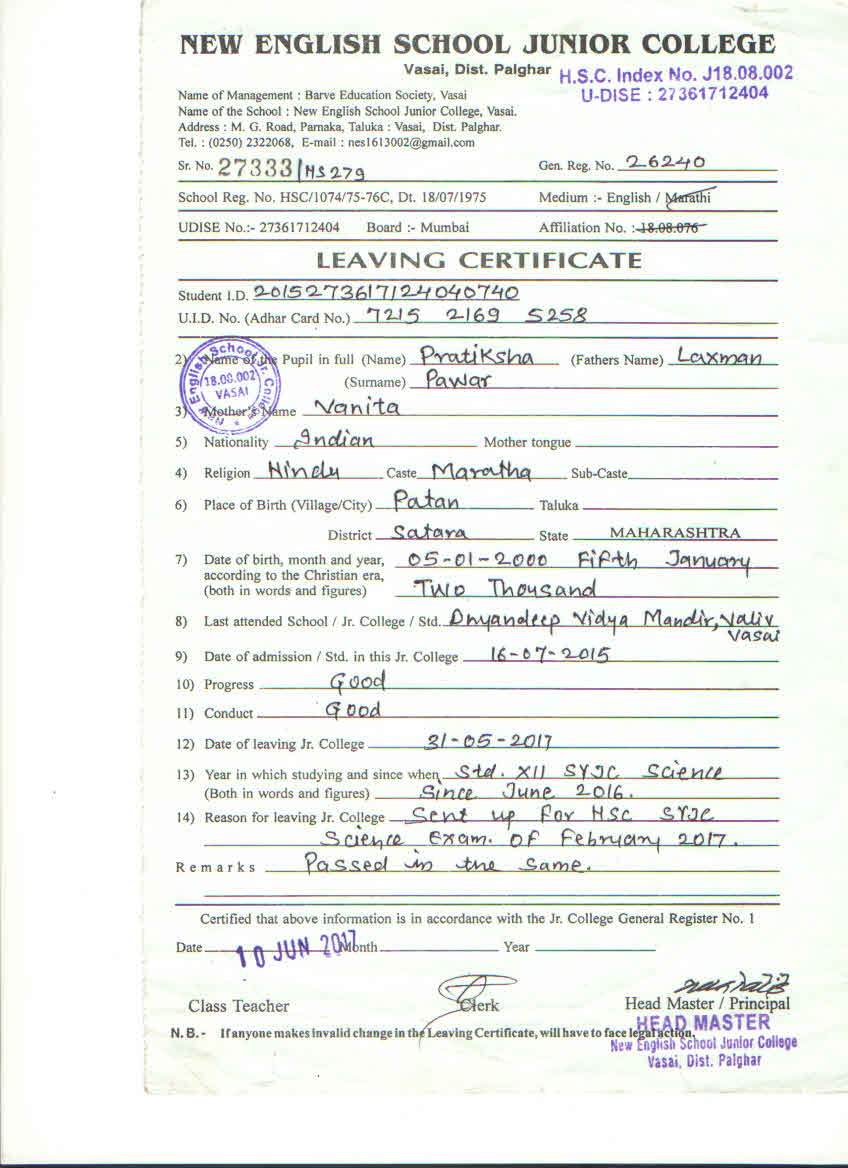 NEW ENGLISH SCHOOL JUNIOR COLLEGE
Vasai, Dist. Palghar H.S.C. Index No. J18.08.002
U-DISE : 27361712404
Name of Management : Barve Education Society, Vasai
Name of the School : New English School Junior College, Vasai.
Address : M. G. Road, Parnaka, Taluka : Vasai, Dist. Palghar.
Tel. : (0250) 2322068, E-mail : nes1613002@gmail.com
Sr. No. 27333/HS279 Gen. Reg. No. 26240
School Reg. No. HSC/1074/75-76C, Dt. 18/07/1975 Medium :- English / Marathi
UDISE No.:- 27361712404 Board :- Mumbai Affiliation No. :-18.08.076
LEAVING CERTIFICATE
Student I.D. 2015273617124040740
U.I.D. No. (Adhar Card No.) 7215 2169 5258
2) Name of the Pupil in full (Name) Pratiksha (Fathers Name) Laxman
(Surname) Pawar
3) Mother's Name Vanita
5) Nationality Indian Mother tongue
4) Religion Hindu Caste Maratha Sub-Caste
6) Place of Birth (Village/City) Patan Taluka
District Satara State MAHARASHTRA
7) Date of birth, month and year, 05-01-2000 Fifth January
according to the Christian era,
(both in words and figures) Two Thousand
8) Last attended School / Jr. College / Std. Dnyandeep Vidya Mandir, Valiv
Vasai
9) Date of admission / Std. in this Jr. College 16-07-2015
10) Progress Good
11) Conduct Good
12) Date of leaving Jr. College 31-05-2017
13) Year in which studying and since when Std. XII SYJC Science
(Both in words and figures) Since June 2016.
14) Reason for leaving Jr. College Sent up for HSC SYJC
Science Exam. of February 2017.
Remarks Passed in the same.
Certified that above information is in accordance with the Jr. College General Register No. 1
Date 10 JUN 2017 Month Year
Class Teacher Clerk Head Master / Principal
HEAD MASTER
N.B.- If anyone makes invalid change in the Leaving Certificate, will have to face legal action.
New English School Junior College
Vasai, Dist. Palghar
New English School Jr. College
18.08.002
VASAI